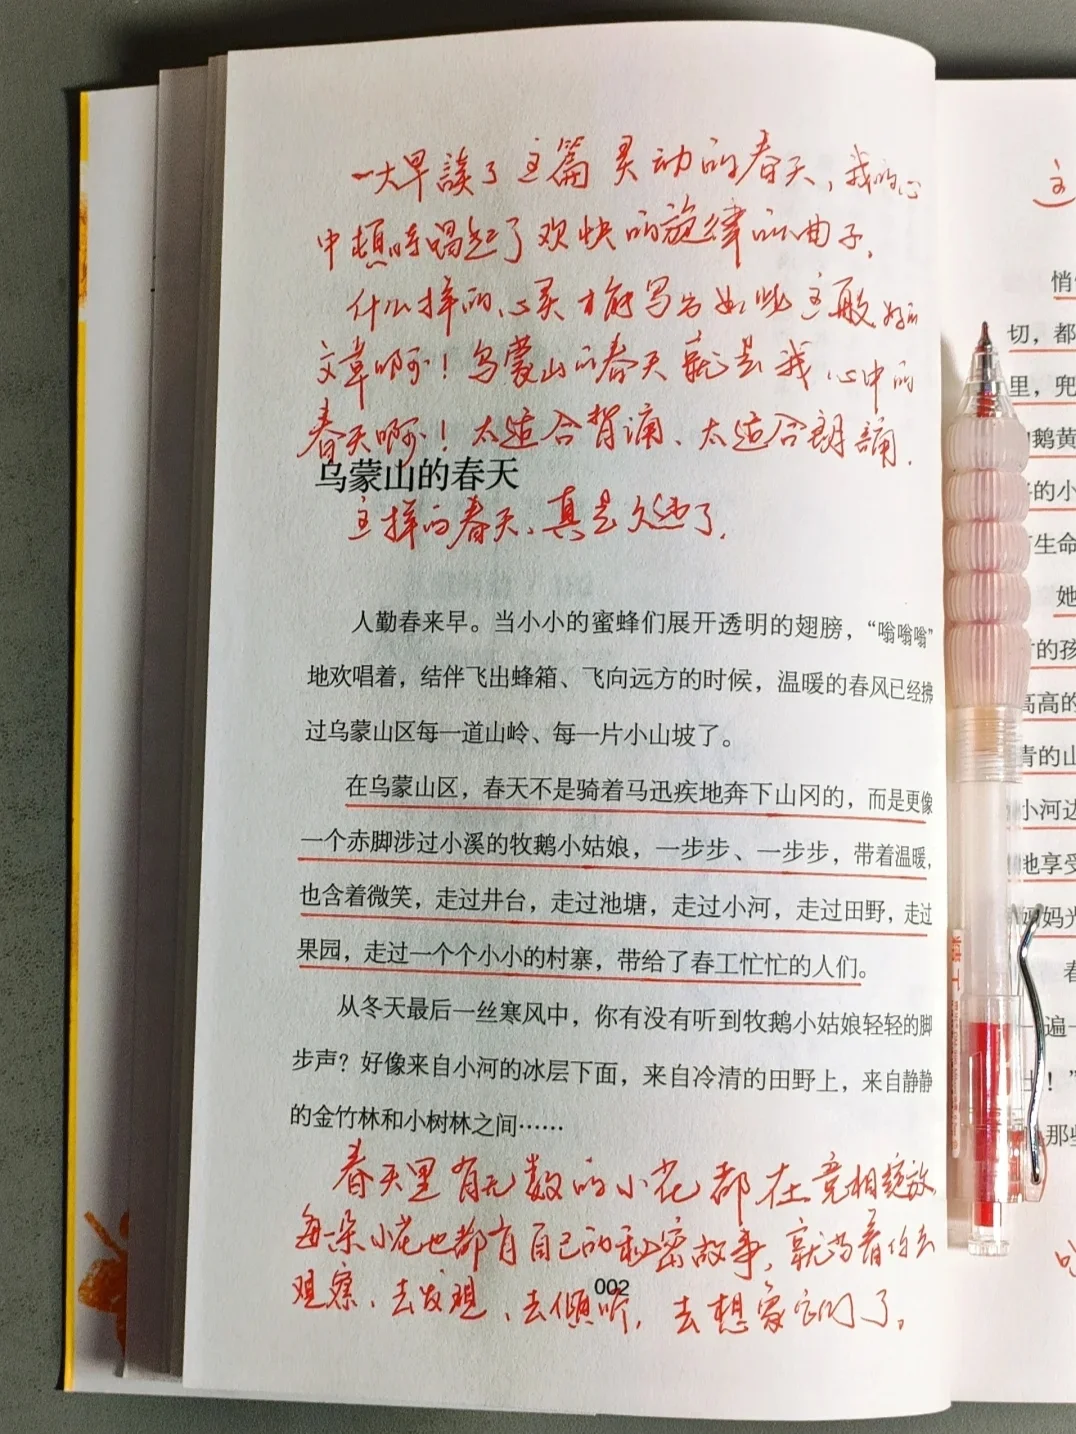 一大早读了这篇灵动的春天，我的心
中顿时唱起了欢快的旋律的曲子。
什么样的心灵才能写出如此这般好的
文章啊！乌蒙山的春天就是我心中的
春天啊！太适合背诵、太适合朗诵。
乌蒙山的春天
这样的春天、真是久违了。
人勤春来早。当小小的蜜蜂们展开透明的翅膀，“嗡嗡嗡”
地欢唱着，结伴飞出蜂箱、飞向远方的时候，温暖的春风已经拂
过乌蒙山区每一道山岭、每一片小山坡了。
在乌蒙山区，春天不是骑着马迅疾地奔下山冈的，而是更像
一个赤脚涉过小溪的牧鹅小姑娘，一步步、一步步，带着温暖，
也含着微笑，走过井台，走过池塘，走过小河，走过田野，走过
果园，走过一个个小小的村寨，带给了春工忙忙的人们。
从冬天最后一丝寒风中，你有没有听到牧鹅小姑娘轻轻的脚
步声？好像来自小河的冰层下面，来自冷清的田野上，来自静静
的金竹林和小树林之间……
春天里有无数的小花都在竞相绽放，
每一朵小花也都有自己的秘密故事，就等着你去
观察、去发现、去倾听，去想象它们了。
002
这
悄
切，都
里，兜
鹅黄
的小
生命
她
的孩
高高的
青的山
小河边
地享受
妈妈光
春
遍一
！”
那些